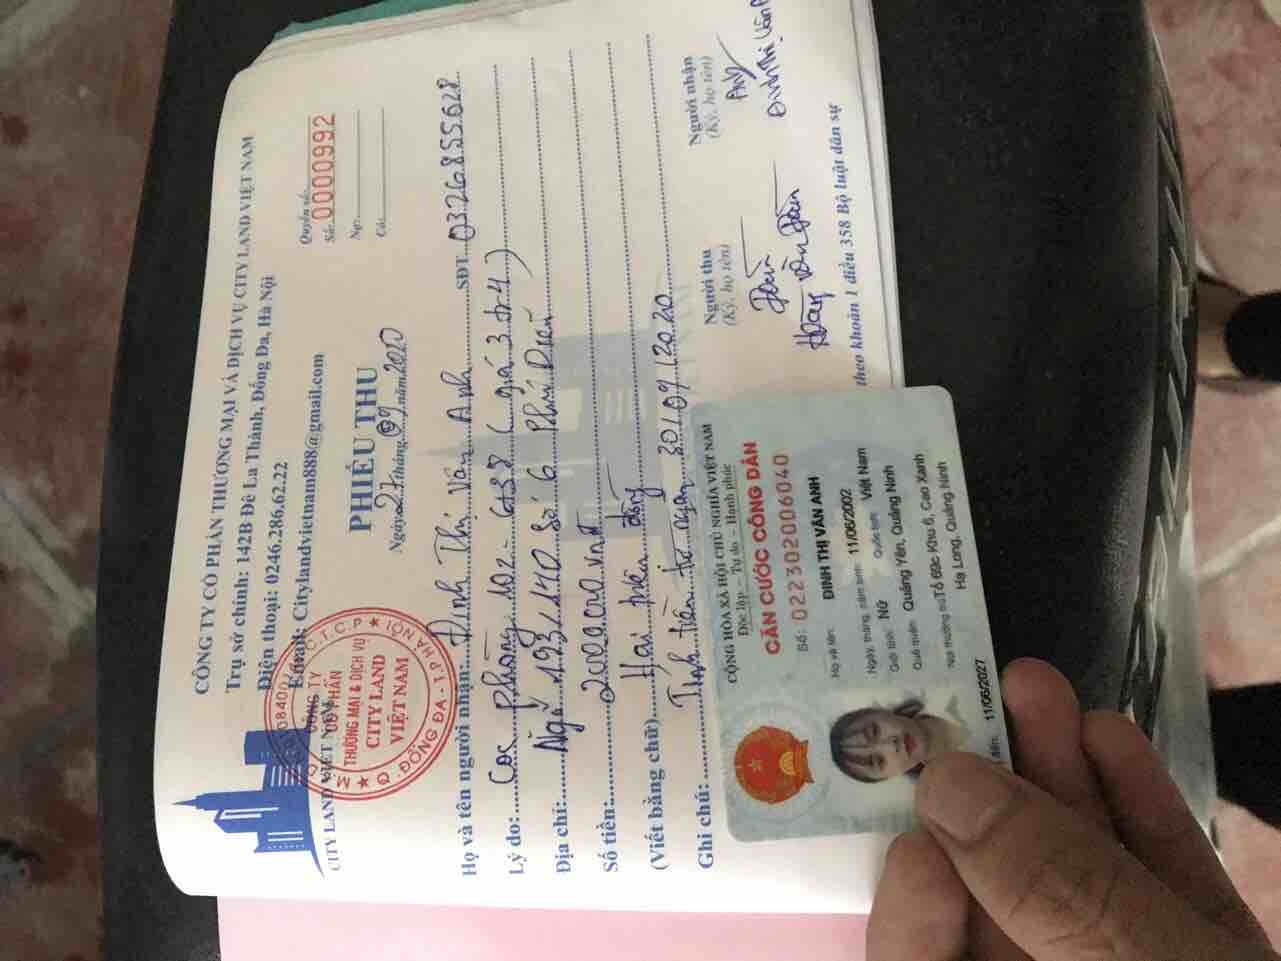 CÔNG TY CỔ PHẦN THƯƠNG MẠI VÀ DỊCH VỤ CITY LAND VIỆT NAM
Trụ sở chính: 142B Đê La Thành, Đống Đa, Hà Nội
Điện thoại: 0246.286.62.22
Email: Citylandvietnam888@gmail.com
CITY LAND VIỆT NAM
CÔNG TY
CỔ PHẦN
THƯƠNG MẠI & DỊCH VỤ
CITY LAND
VIỆT NAM
Q. ĐỐNG ĐA - T.P HÀ NỘI
PHIẾU THU
Ngày 27 tháng 09 năm 2020
Quyển số:
Số: 0000992
Nợ:
Có:
Họ và tên người nhận: Đinh Thị Vân Anh SĐT: 0326.855.628
Lý do: Cọc phòng 102 - (giá 3tr4)
Địa chỉ: Ngõ 193/140 số 6 Phú Diễn
Số tiền: 2000.000 vnđ
(Viết bằng chữ) Hai triệu đồng
Ghi chú: Tính tiền từ ngày 30/09/2020
Người thu
(Ký, họ tên)
Người nhận
(Ký, họ tên)
Hoàng Văn
Anh
Đinh Thị Vân A
theo khoản 1 điều 358 Bộ luật dân sự
CỘNG HÒA XÃ HỘI CHỦ NGHĨA VIỆT NAM
Độc lập - Tự do - Hạnh phúc
CĂN CƯỚC CÔNG DÂN
Số: 022302006040
Họ và tên: ĐINH THỊ VÂN ANH
Ngày, tháng, năm sinh: 11/06/2002
Giới tính: Nữ Quốc tịch: Việt Nam
Quê quán: Quảng Yên, Quảng Ninh
Nơi thường trú: Tổ 69c Khu 6, Cao Xanh
Hạ Long, Quảng Ninh
đến: 11/06/2027